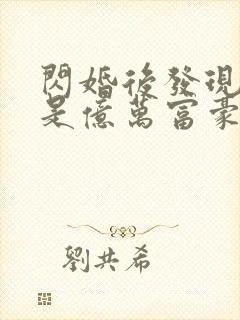 閃婚後發現
是億萬富豪
劉共希